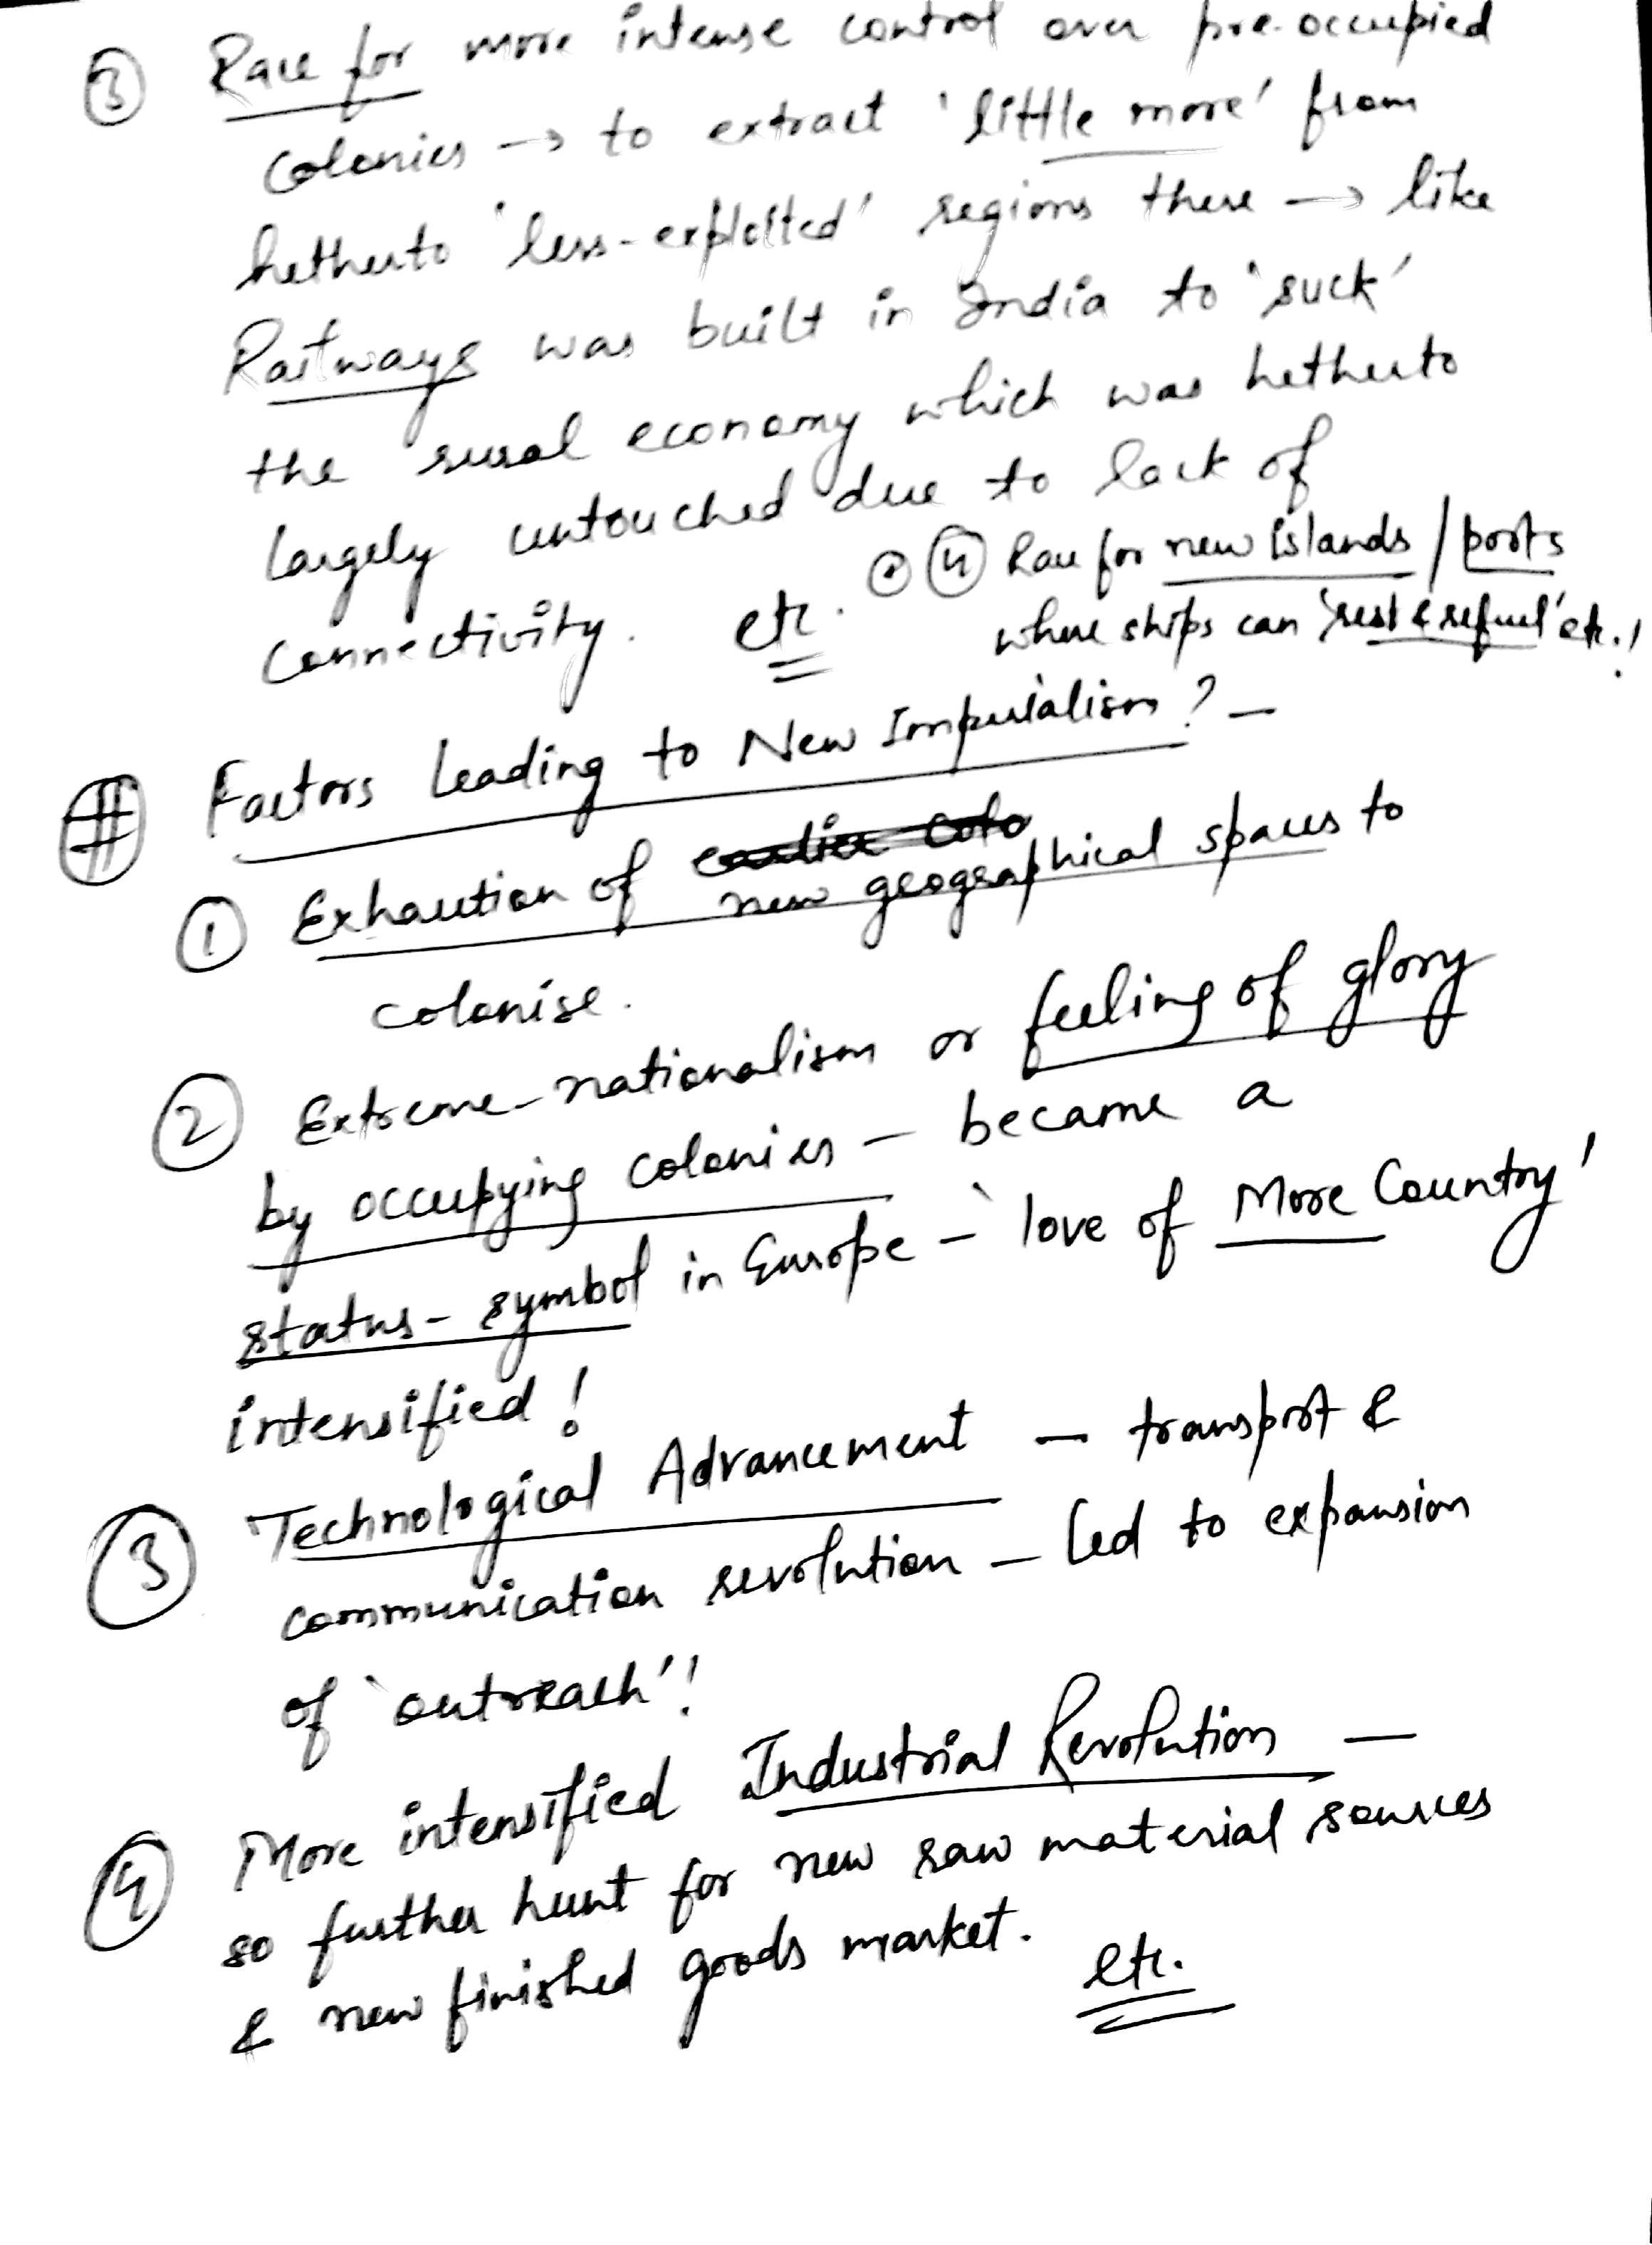 ③ Race for more intense control over pre-occupied
colonies → to extract 'little more' from
hetherto 'less-exploited' regions there → like
Railways was built in India to 'suck'
the rural economy which was hetherto
largely untouched due to lack of
connectivity. etc.
④ Race for new islands / ports
where ships can 'rest & refuel' etc.!
# Factors leading to New Imperialism? –
① Exhaution of new geographical spaces to
colonise.
② Extreme-nationalism or feeling of glory
by occupying colonies – became a
status-symbol in Europe – 'love of More Country'
intensified!
③ Technological Advancement – transport &
communication revolution – led to expansion
of 'outreach'!
④ More intensified Industrial Revolution –
so further hunt for new raw material sources
& new finished goods market. etc.